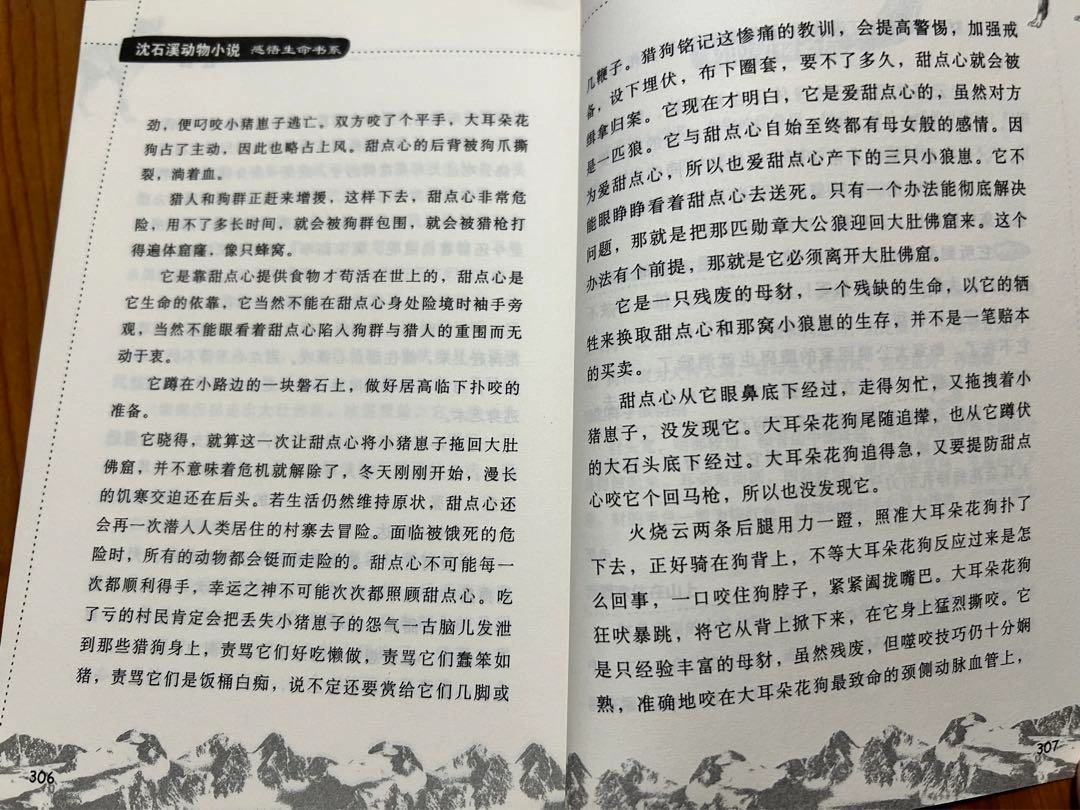 沈石溪动物小说 感悟生命书系
劲，便叼咬小猪崽子逃亡。双方咬了个平手，大耳朵花
狗占了主动，因此也略占上风。甜点心的后背被狗爪撕
裂，淌着血。
猎人和狗群正赶来增援，这样下去，甜点心非常危
险，用不了多长时间，就会被狗群包围，就会被猎枪打
得遍体窟窿，像只蜂窝。
它是靠甜点心提供食物才苟活在世上的，甜点心是
它生命的依靠，它当然不能在甜点心身处险境时袖手旁
观，当然不能眼看着甜点心陷入狗群与猎人的重围而无
动于衷。
它蹲在小路边的一块磐石上，做好居高临下扑咬的
准备。
它晓得，就算这一次让甜点心将小猪崽子拖回大肚
佛窟，并不意味着危机就解除了，冬天刚刚开始，漫长
的饥寒交迫还在后头。若生活仍然维持原状，甜点心还
会再一次潜入人类居住的村寨去冒险。面临被饿死的危
险时，所有的动物都会铤而走险的。甜点心不可能每一
次都顺利得手，幸运之神不可能次次都照顾甜点心。吃
了亏的村民肯定会把丢失小猪崽子的怨气一古脑儿发泄
到那些猎狗身上，责骂它们好吃懒做，责骂它们蠢笨如
猪，责骂它们是饭桶白痴，说不定还要赏给它们几脚或
306
几鞭子。猎狗铭记这惨痛的教训，会提高警惕，加强戒
备，设下埋伏，布下圈套，要不了多久，甜点心就会被
缉拿归案。它现在才明白，它是爱甜点心的，虽然对方
是一匹狼。它与甜点心自始至终都有母女般的感情。因
为爱甜点心，所以也爱甜点心产下的三只小狼崽。它不
能眼睁睁看着甜点心去送死。只有一个办法能彻底解决
问题，那就是把那匹勋章大公狼迎回大肚佛窟来。这个
办法有个前提，那就是它必须离开大肚佛窟。
它是一只残废的母豺，一个残缺的生命，以它的牺
牲来换取甜点心和那窝小狼崽的生存，并不是一笔赔本
的买卖。
甜点心从它眼鼻底下经过，走得匆忙，又拖拽着小
猪崽子，没发现它。大耳朵花狗尾随追撵，也从它蹲伏
的大石头底下经过。大耳朵花狗追得急，又要提防甜点
心咬它个回马枪，所以也没发现它。
火烧云两条后腿用力一蹬，照准大耳朵花狗扑了
下去，正好骑在狗背上，不等大耳朵花狗反应过来是怎
么回事，一口咬住狗脖子，紧紧阖拢嘴巴。大耳朵花狗
狂吠暴跳，将它从背上掀下来，在它身上猛烈撕咬。它
是只经验丰富的母豺，虽然残废，但噬咬技巧仍十分娴
熟，准确地咬在大耳朵花狗最致命的颈侧动脉血管上，
307